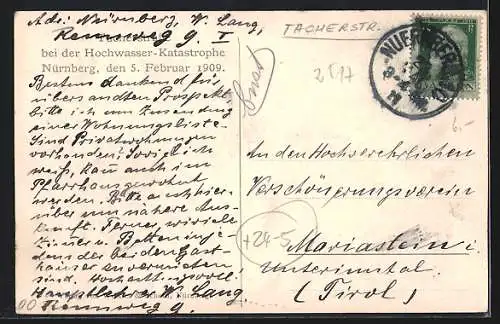 Adr: Nürnberg, W. Lang,
Rennweg 9. I
bei der Hochwasser-Katastrophe
Nürnberg, den 5. Februar 1909.
Bestens dankend für
übersandten Prospekt
bitte ich um Zusendung
einer Wohnungsliste.
Sind Privatwohnungen
vorhanden? Soviel ich
weiß, kann auch im
Pfarrhaus gewohnt
werden. Bitte auch hier-
über um nähere Aus-
kunft. Ferner wieviele
Zimmer u. Betten in je-
dens der beiden Gast-
häuser zu vermieten
sind. Hochachtungsvoll,
Hauptlehrer W. Lang,
Rennweg 9.
TACHERSTR.
NUERNBERG
2517
An den Hochverehrlichen
Verschönerungsverein
+24-5
Mariastein i.
Unterinntal
(Tirol)